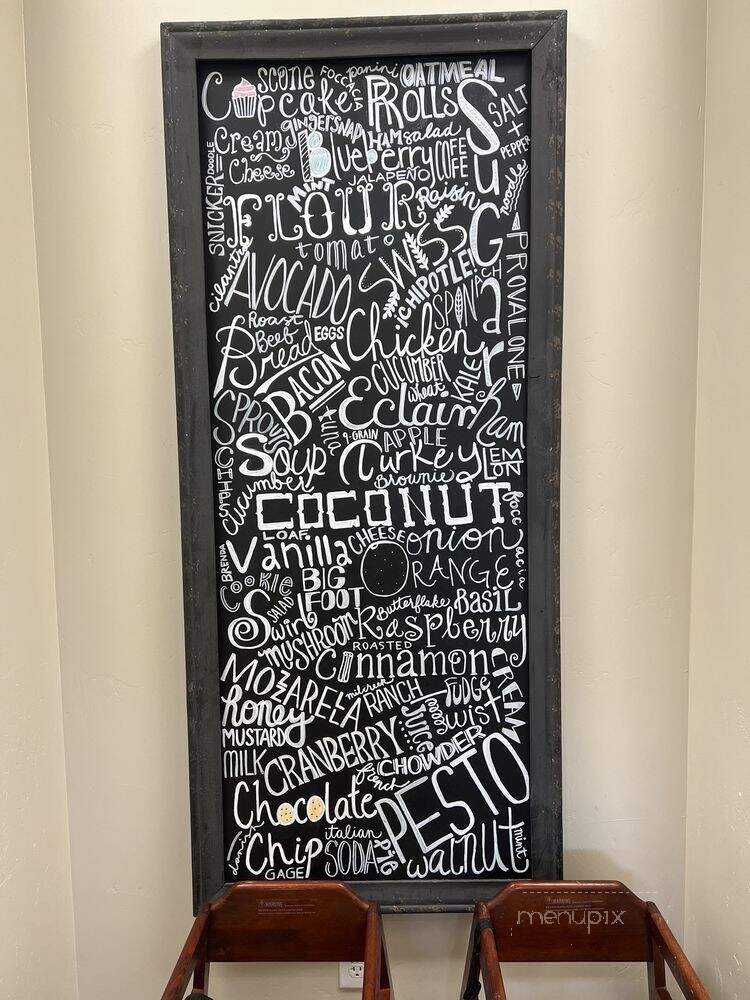 Cupcake
scone
FOCCACIA
panini
OATMEAL
ROLLS
SugaR
SALT + PEPPER
Cream Cheese
gingersnap
Blueberry
HAM
salad
COFFEE
SNICKERDOODLE
MINT
JALAPEÑO
Raisin
noodle
FLOUR
tomato
SWISS
cilantro
AVOCADO
CHIPOTLE
SPINACH
PROVALONE
Roast Beef
EGGS
Bread
Chicken
BACON
CUCUMBER
wheat
KALE
Eclair
ham
SPROUT
tuna
9-GRAIN
APPLE
Soup
Turkey
LEMON
Brownie
cucumber
COCONUT
foccacia
LOAF
CHEESE
onion
BRENDA
Vanilla
ORANGE
COOKIE
BIG FOOT
Butterflake
BASIL
SALAD
Swirl
MUSHROOM
Raspberry
ROASTED
Cinnamon
MOZARELA
CREAM
milcreek
RANCH
FUDGE
honey
JUICE
twist
MUSTARD
MILK
CRANBERRY
CHOWDER
french
Chocolate
PESTO
Chip
italian
SODA
pie
walnut
mint
GAGE
WARNING
WARNING
menupix